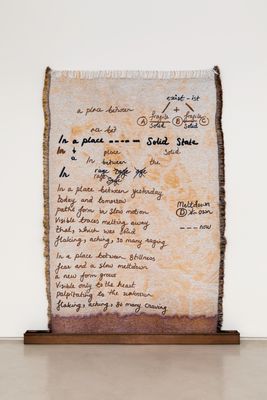 exist-ist
a place between
+
fragile fragile
A Solid B Solid C
nce bet
In a place ----- Solid State
In a place Solid
In between the
In rage
In a place between yesterday
today and tomorrow
paths form in slow motion
Visible traces melting away
that, which was solid
flaking, aching, so many raging
Meltdown
D
--- now
In a place between Stillness
fear and a slow meltdown
a new form grows
Visible only to the heart
palpitating to the unknown
flaking, aching, so many craving